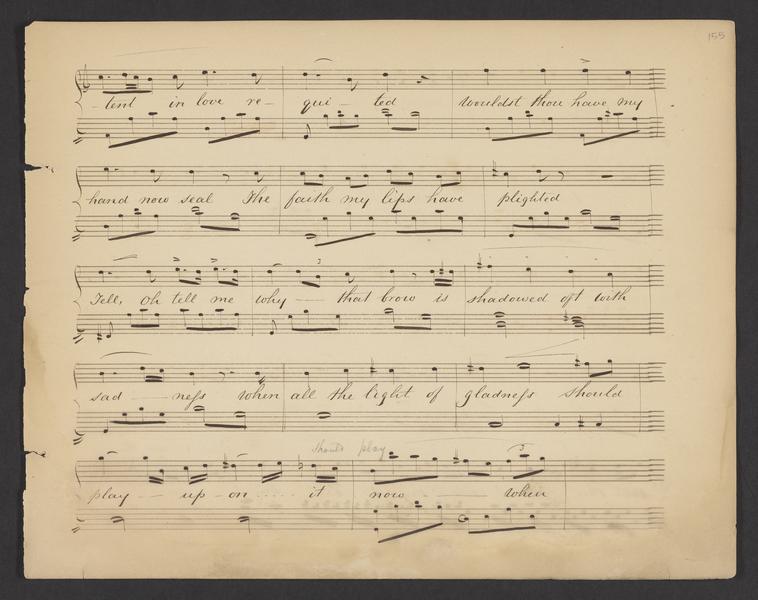 155
-tent in love re- qui- ted wouldst thou have my
hand now seal The faith my lips have plighted
Tell, oh tell me why — that brow is shadowed oft with
sad — neſs when all the light of gladneſs should
should play
play — up-on ..... it now — — when